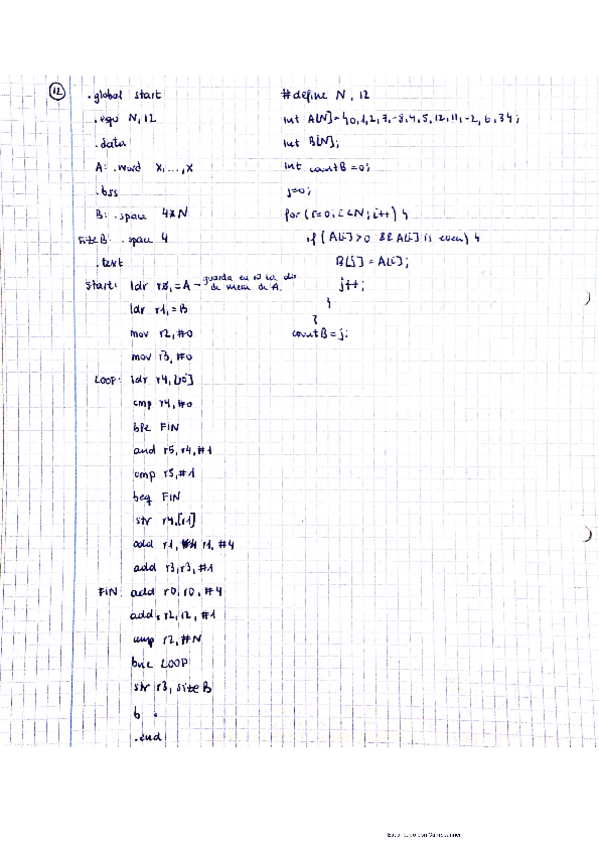 12
.global start
.equ N, 12
.data
A: .word x,...,x
.bss
B: .space 4*N
sizeB: .space 4
.text
start: ldr r0,=A → guarda en r0 la dir de mem de A.
ldr r1,=B
mov r2,#0
mov r3,#0
LOOP: ldr r4,[r0]
cmp r4,#0
ble FIN
and r5,r4,#1
cmp r5,#1
beq FIN
str r4,[r1]
add r1, r1, #4
add r3,r3,#1
FIN: add r0,r0,#4
add r2,r2,#1
cmp r2,#N
bne LOOP
str r3, sizeB
b .
.end
#define N, 12
int A[N]={0,1,2,7,-8,4,5,12,11,-2,6,34};
int B[N];
int countB=0;
j=0;
for (i=0; i<N; i++) {
if (A[i]>0 && A[i] is even) {
B[j] = A[i];
j++;
}
}
countB=j;